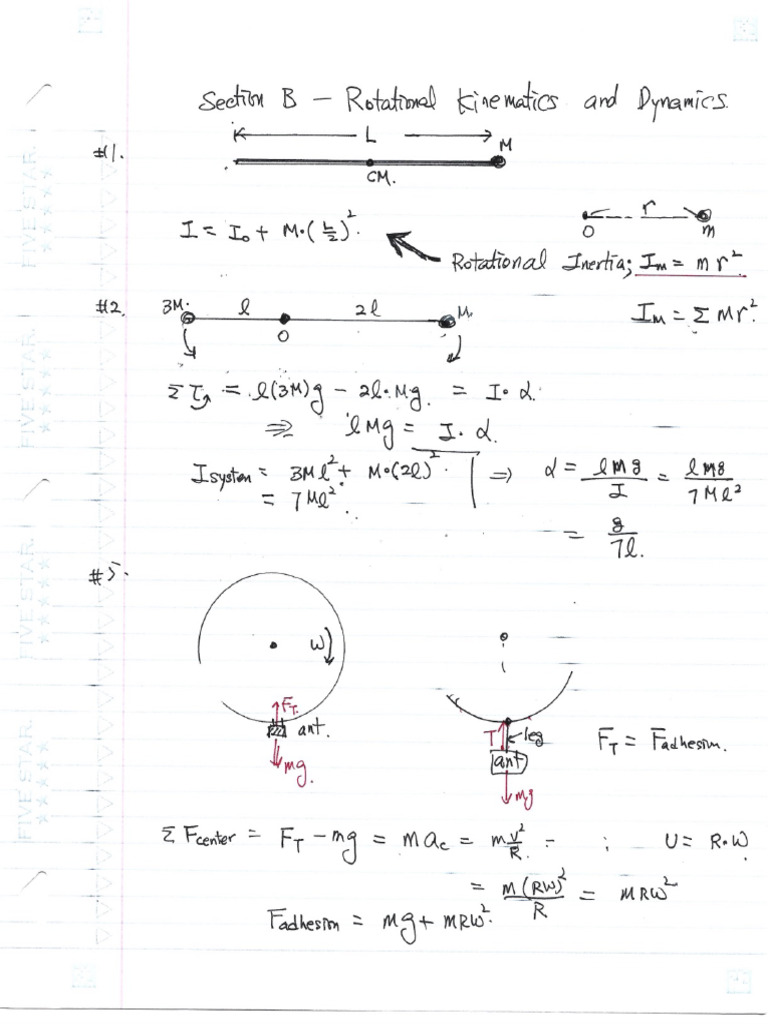 Section B – Rotational Kinematics and Dynamics.
L
#1.
M
CM.
I = I₀ + M·(L/2)².
r
O
m
Rotational Inertia; Iₘ = mr²
#2.
3M.
l
2l
M.
O
Iₘ = Σ Mr².
Στ = l(3M)g – 2l·Mg. = I·α.
⇒ lMg = I·α.
I system = 3Ml² + M·(2l)². ⇒ α = lMg/I = lMg/7Ml²
= 7Ml².
= g/7l.
#5.
ω
F_T.
ant.
mg.
T
leg
ant
mg
F_T = F adhesion.
ΣF center = F_T – mg = mac = m v²/R. – ; v = R·ω.
= m(Rω)²/R = mRω²
F adhesion = mg + mRω².
FIVE STAR.
FIVE STAR.
FIVE STAR.
FIVE STAR.